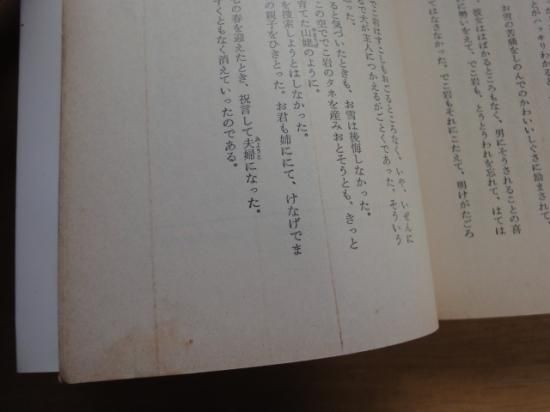 とがハッキリわかると
お雪の苦痛をしのんでのかわいいしぐさに励まされて、
彼女ははばかるところもなく、男にそうされることの喜
に勢いをえて、でこ岩も、とうとうわれを忘れて、はては
てはなさなかった。でこ岩もそれにこたえて、明けがたごろ
でこ岩はすこしもおこるところなく、いや、いぜんに
るで夫が主人につかえるがごとくであった。そういう
った。
ると気づいたときも、お雪は後悔しなかった。
この空ででこ岩のタネを産みおとそうとも、きっと
育てた山姥のように。
を捜索しようとはしなかった。
の親子をひきとった。お君も姉ににて、けなげでま
の春を迎えたとき、祝言して夫婦になった。
みょうと
すくともなく消えていったのである。